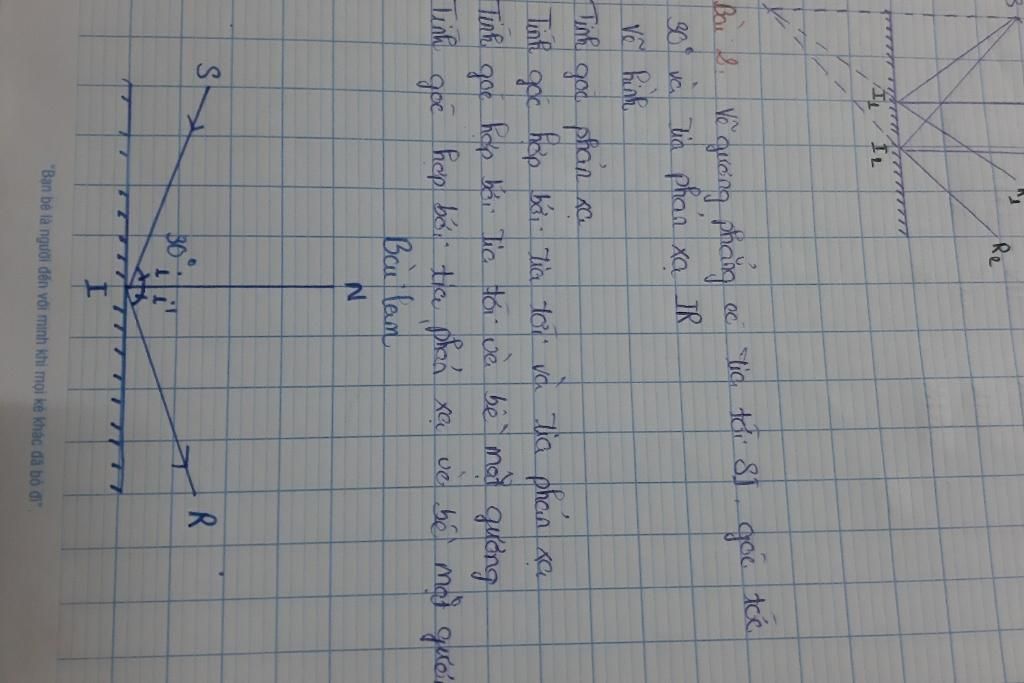 B
I₁
I₂
R₁
R₂
Bài 2. Vẽ gương phẳng có tia tới SI, góc tới
30° và tia phản xạ IR
Vẽ hình
Tính góc phản xạ
Tính góc hợp bởi tia tới và tia phản xạ
Tính góc hợp bởi tia tới và bề mặt gương
Tính góc hợp bởi tia phản xạ và bề mặt gươn
Bài làm
N
S
R
30°
i
i'
I
"Bạn bè là người đến với mình khi mọi kẻ khác đã bỏ đi".